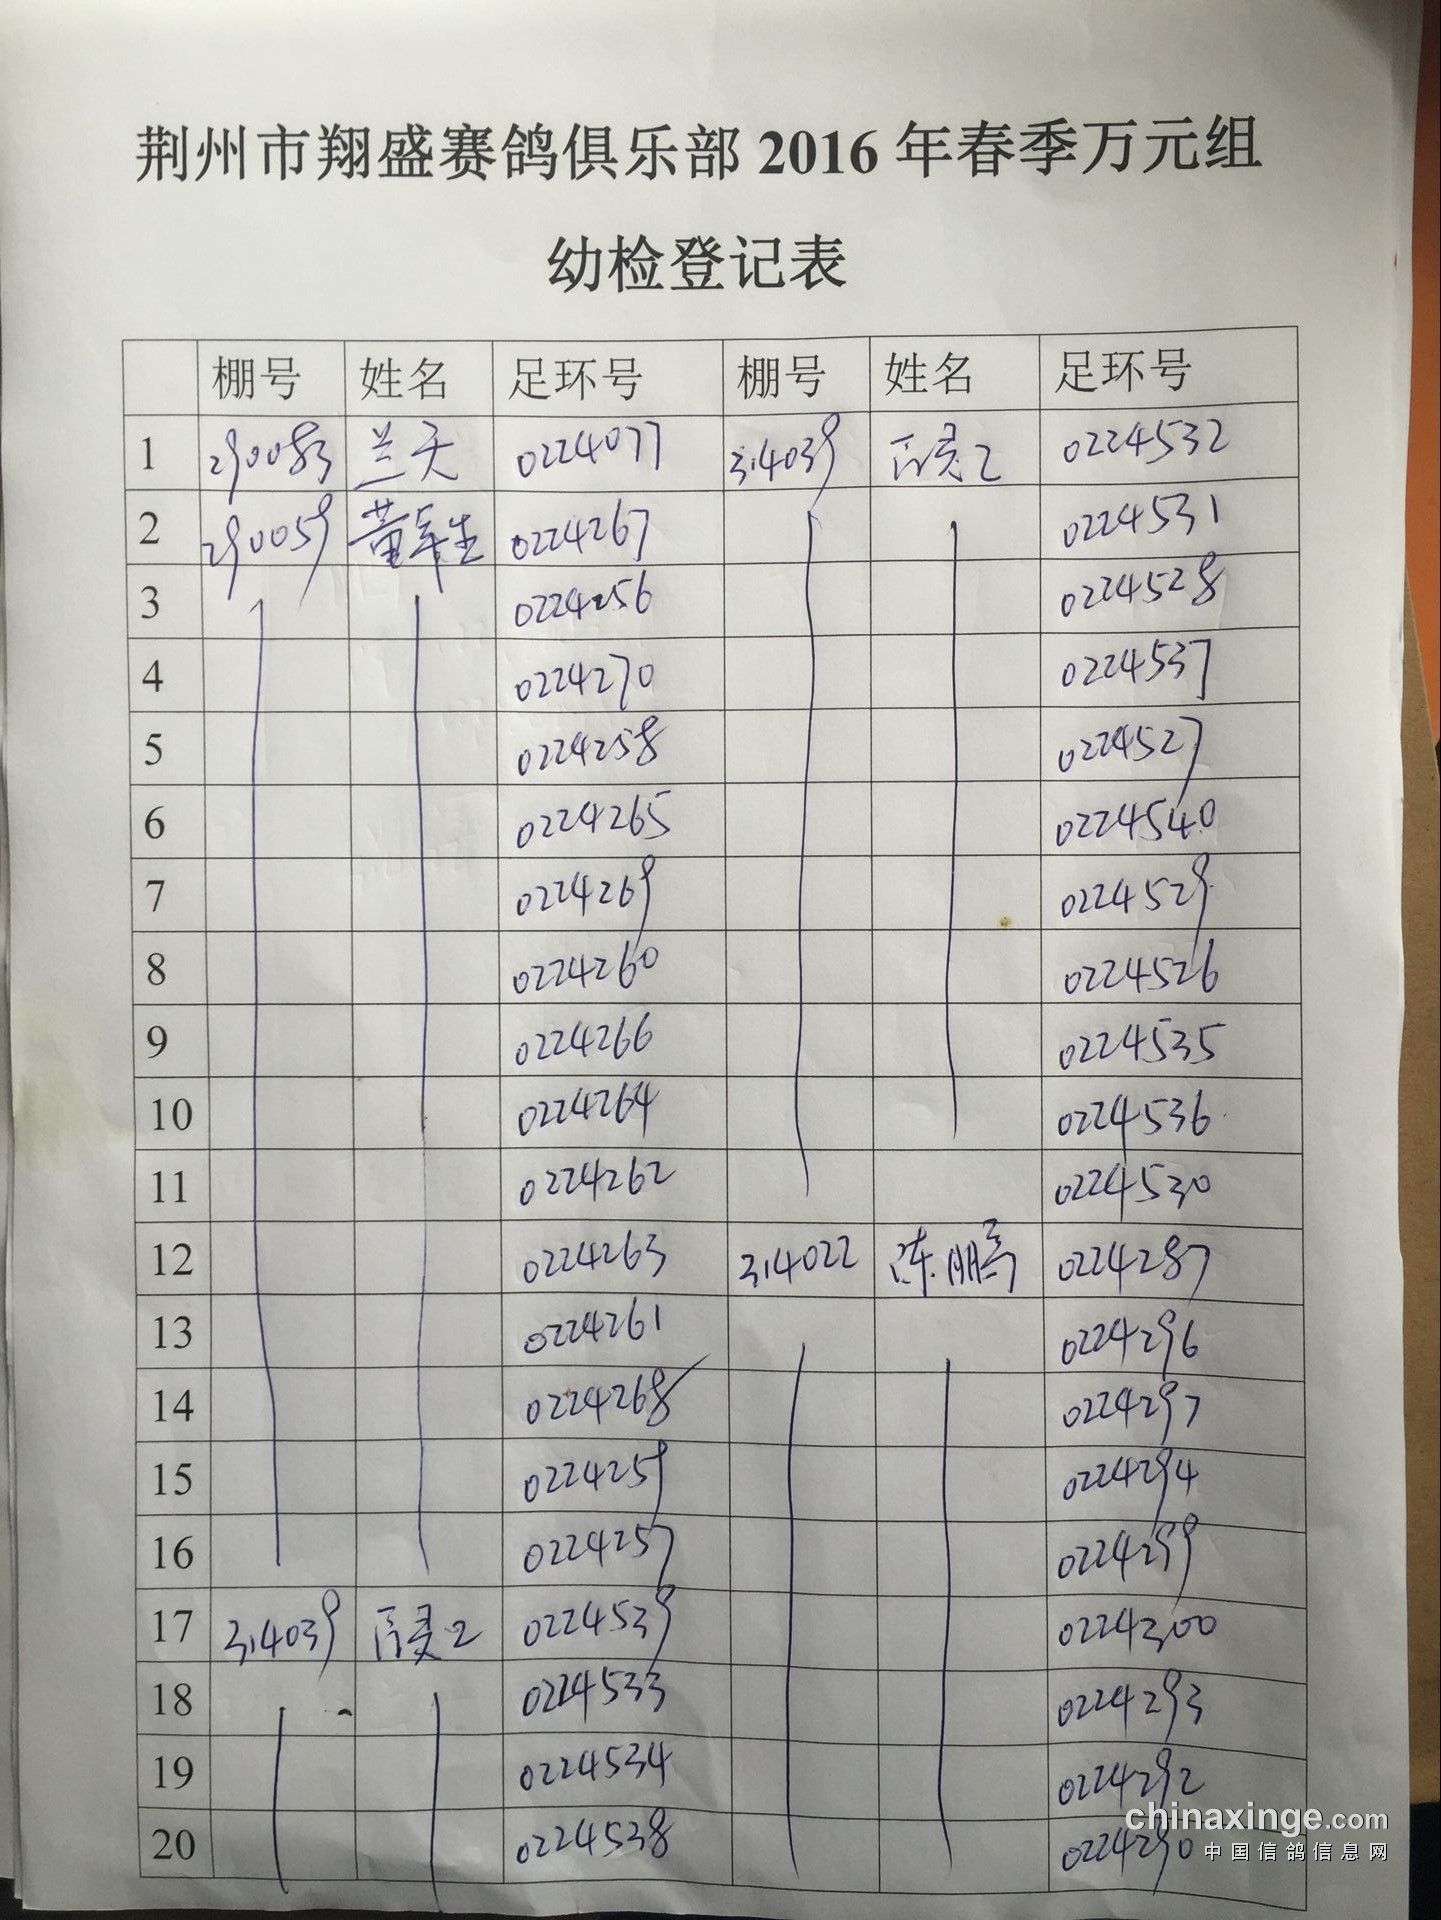 荆州市翔盛赛鸽俱乐部 2016 年春季万元组
幼检登记表
棚号 姓名 足环号 棚号 姓名 足环号
1 290083 兰天 0224077 314039 0224532
2 290059 董军生 0224267 0224531
3 0224256 0224528
4 0224270 0224537
5 0224258 0224527
6 0224265 0224540
7 0224269 0224529
8 0224260 0224526
9 0224266 0224535
10 0224264 0224536
11 0224262 0224530
12 0224263 314022 陈鹏 0224287
13 0224261 0224296
14 0224268 0224297
15 0224259 0224294
16 0224257 0224299
17 314039 0224539 0224300
18 0224533 0224293
19 0224534 0224292
20 0224538 0224290
chinaxinge.com
中国信鸽信息网